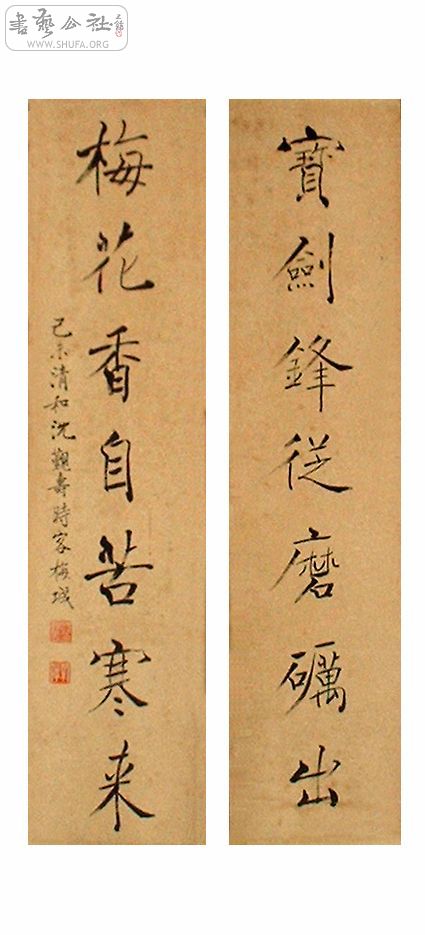 書藝公社
WWW.SHUFA.ORG
寶劍鋒従磨礪出
梅花香自苦寒来
己未清和沈觀壽時客梅城